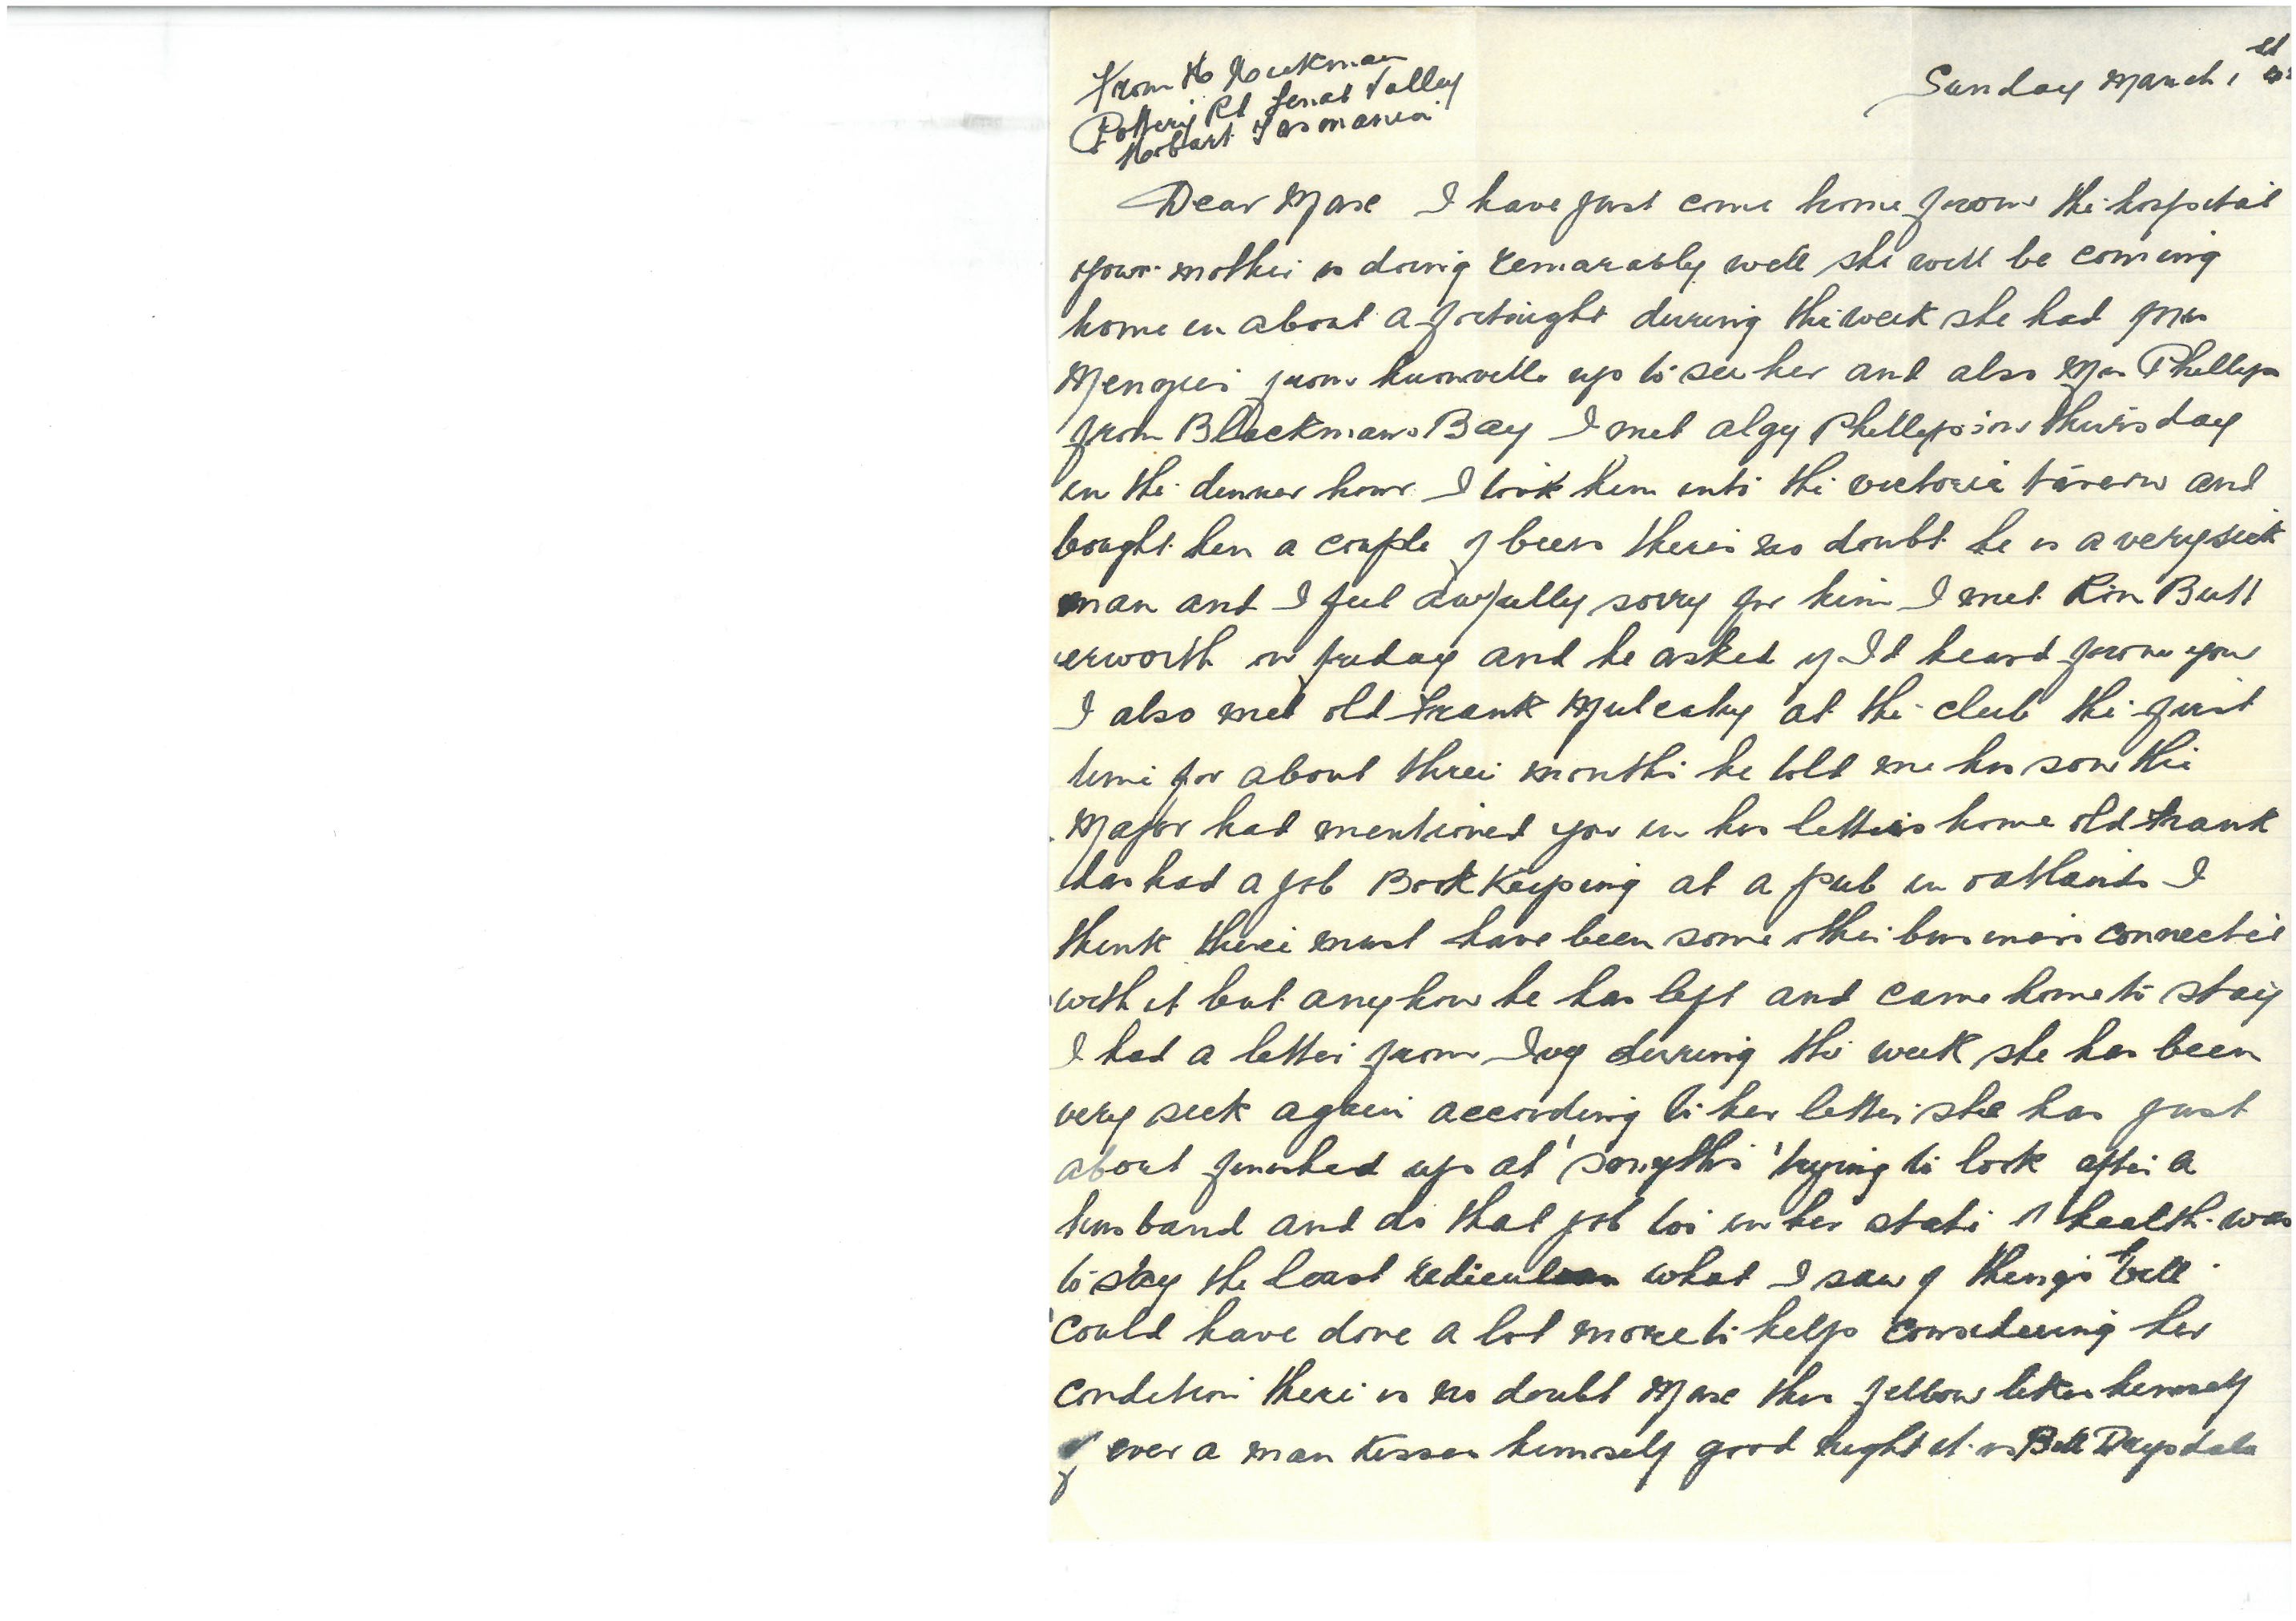 From H Huckman
Pottery Rd Lenah Valley
Hobart Tasmania
Sunday March 1st
Dear Max I have just come home from the hospital
your mother is doing remarably well she will be coming
home in about a fortnight during the week she had Mrs
Menzies from huonville up to see her and also Mrs Phillips
from Blackmans Bay I met algy Phillips on thursday
in the dinner hour I took him into the victoria tavern and
bought him a couple of beers there is no doubt he is a very sick
man and I feel awfully sorry for him I met Rin Butt
erworth on friday and he asked if I'd heard from you
I also met old Frank Mulcahy at the club the first
time for about three months he told me his son the
Major had mentioned you in his letters home old Frank
has had a job Book Keeping at a pub in oatlands I
think there must have been some other business connected
with it but anyhow he has left and came home to stay
I had a letter from Ivy durring the week she has been
very sick again according to her letter she has just
about finished up at trying to look after a
husband and do that job too in her state of health was
to say the least rediculous what I saw of things Bill
could have done a lot more to help considering her
condition there is no doubt Max this fellow likes himself
if ever a man kisses himself good night it is Bill Drysdale